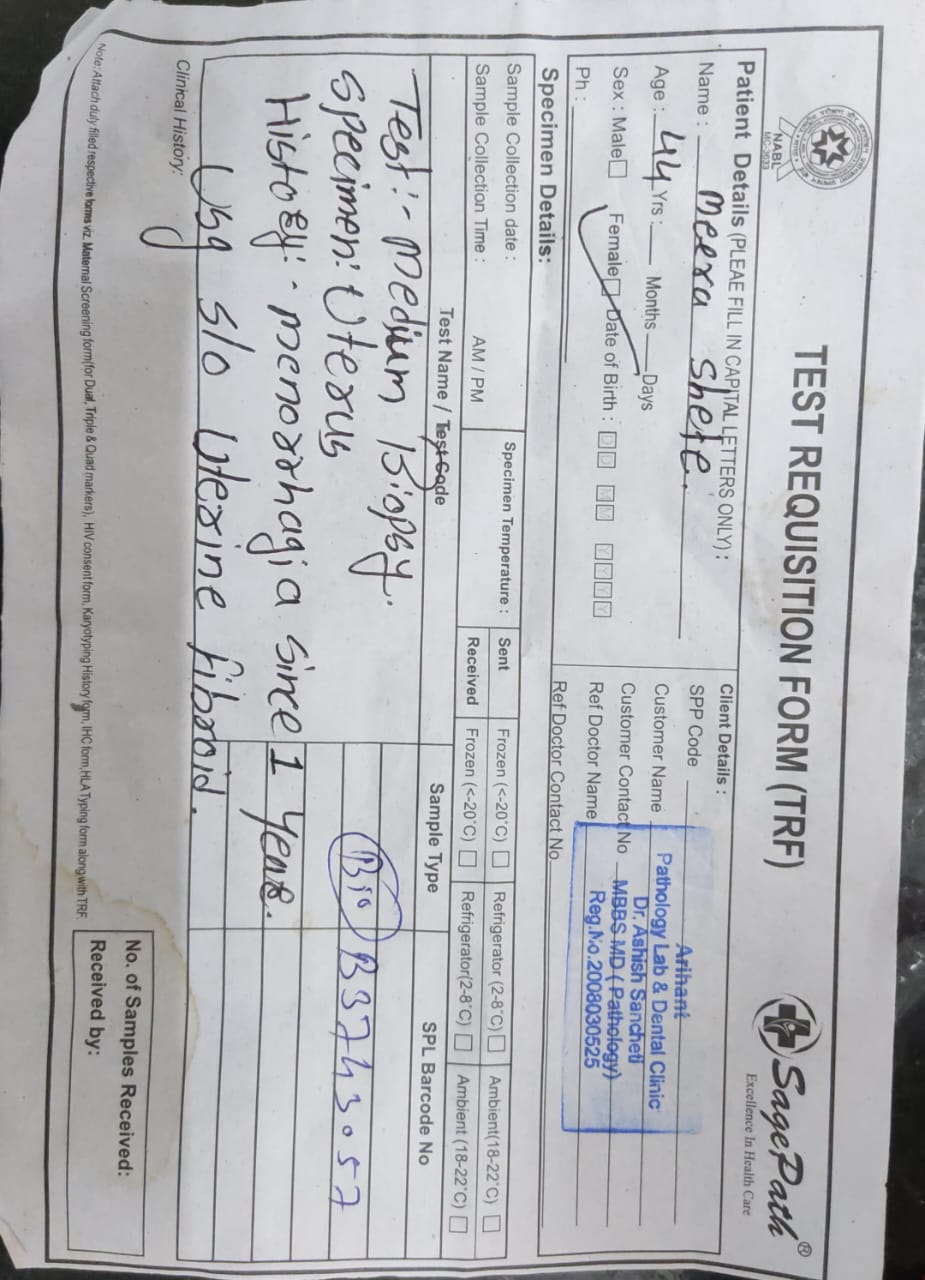 NABL
MC-2633
TEST REQUISITION FORM (TRF)
SagePath®
Excellence In Health Care
Patient Details (PLEAE FILL IN CAPITAL LETTERS ONLY) :
Name : Meera Shete.
Age : 44 Yrs : Months Days
Sex : Male Female Date of Birth : D D M M Y Y Y Y
Ph :
Client Details :
SPP Code
Customer Name
Customer Contact No
Ref Doctor Name
Ref Doctor Contact No
Arihant
Pathology Lab & Dental Clinic
Dr. Ashish Sancheti
MBBS MD ( Pathology)
Reg.No.2008030525
Specimen Details:
Sample Collection date :
Sample Collection Time : AM / PM
Specimen Temperature :
Sent Frozen (<-20°C) Refrigerator (2-8°C) Ambient(18-22°C)
Received Frozen (<-20°C) Refrigerator(2-8°C) Ambient (18-22°C)
Test Name / Test Code Sample Type SPL Barcode No
Test:- Medium Biopsy.
Specimen: Uterus Bio B3743057
History:- menorrhagia since 1 Year.
Usg s/o Uterine fibroid.
Clinical History:
Note: Attach duly filled respective forms viz. Maternal Screening form(for Dual, Triple & Quad markers), HIV consent form, Karyotyping History form, IHC form, HLA Typing form along with TRF.
No. of Samples Received:
Received by: